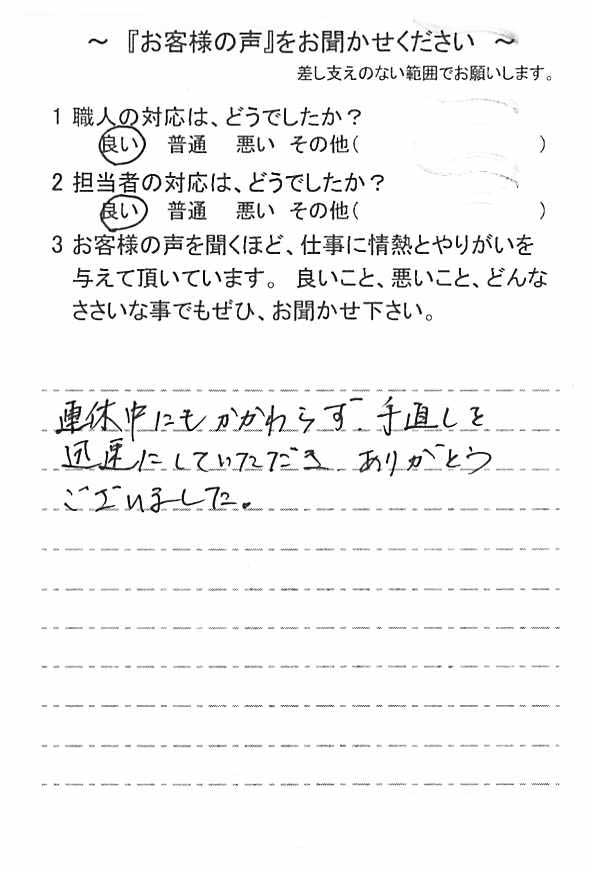 ～ 『お客様の声』をお聞かせください ～
差し支えのない範囲でお願いします。
1 職人の対応は、どうでしたか？
良い 普通 悪い その他( )
2 担当者の対応は、どうでしたか？
良い 普通 悪い その他( )
3 お客様の声を聞くほど、仕事に情熱とやりがいを
与えて頂いています。 良いこと、悪いこと、どんな
ささいな事でもぜひ、お聞かせ下さい。
連休中にもかかわらず、手直しを
迅速にしていただき、ありがとう
ございました。